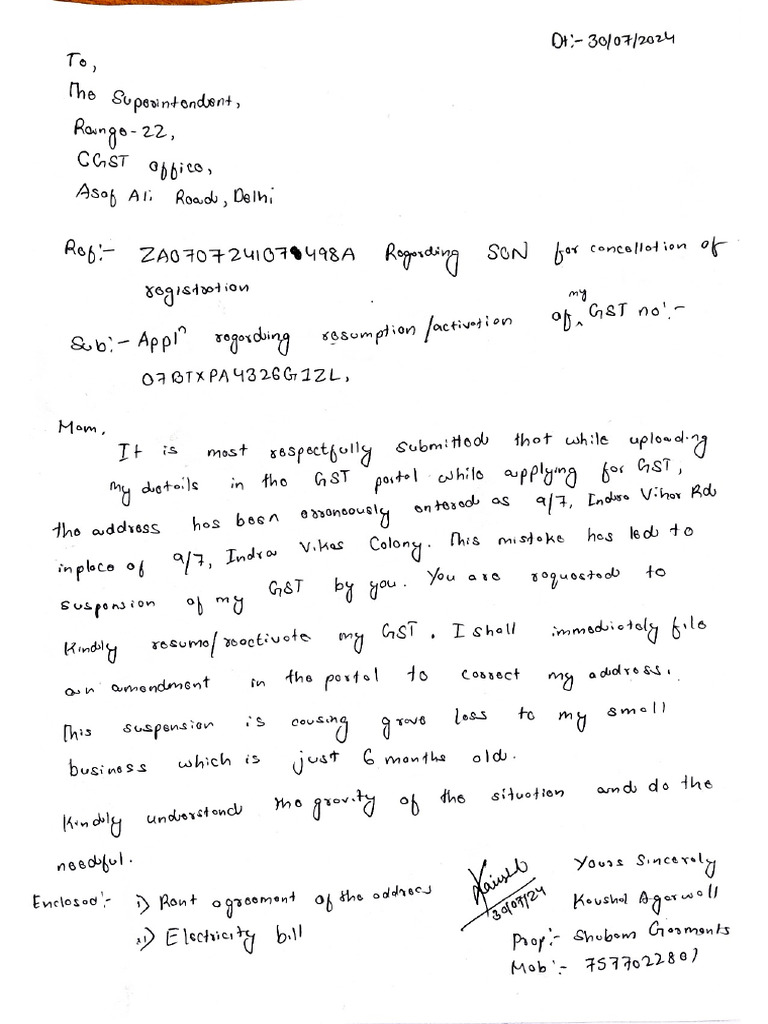 Dt:- 30/07/2024
To,
The Superintendent,
Range-22,
CGST office,
Asaf Ali Road, Delhi
Ref:- ZA070724107498A Regarding SCN for cancellation of
registration
Sub:- Appl^n regarding resumption/activation of my GST no:-
07BTXPA4326G1ZL,
Mam,
It is most respectfully submitted that while uploading
my details in the GST portal while applying for GST,
the address has been erroneously entered as 9/7, Indra Vihar Rd
inplace of 9/7, Indra Vikas Colony. This mistake has led to
suspension of my GST by you. You are requested to
Kindly resume/reactivate my GST. I shall immediately file
an amendment in the portal to correct my address.
This suspension is causing grave loss to my small
business which is just 6 months old.
Kindly understand the gravity of the situation and do the
needful.
Enclosed:- i) Rent agreement of the address
ii) Electricity bill
30/07/24
Yours Sincerely
Kaushal Agarwall
Prop:- Shubam Garments
Mob:- 7577022807